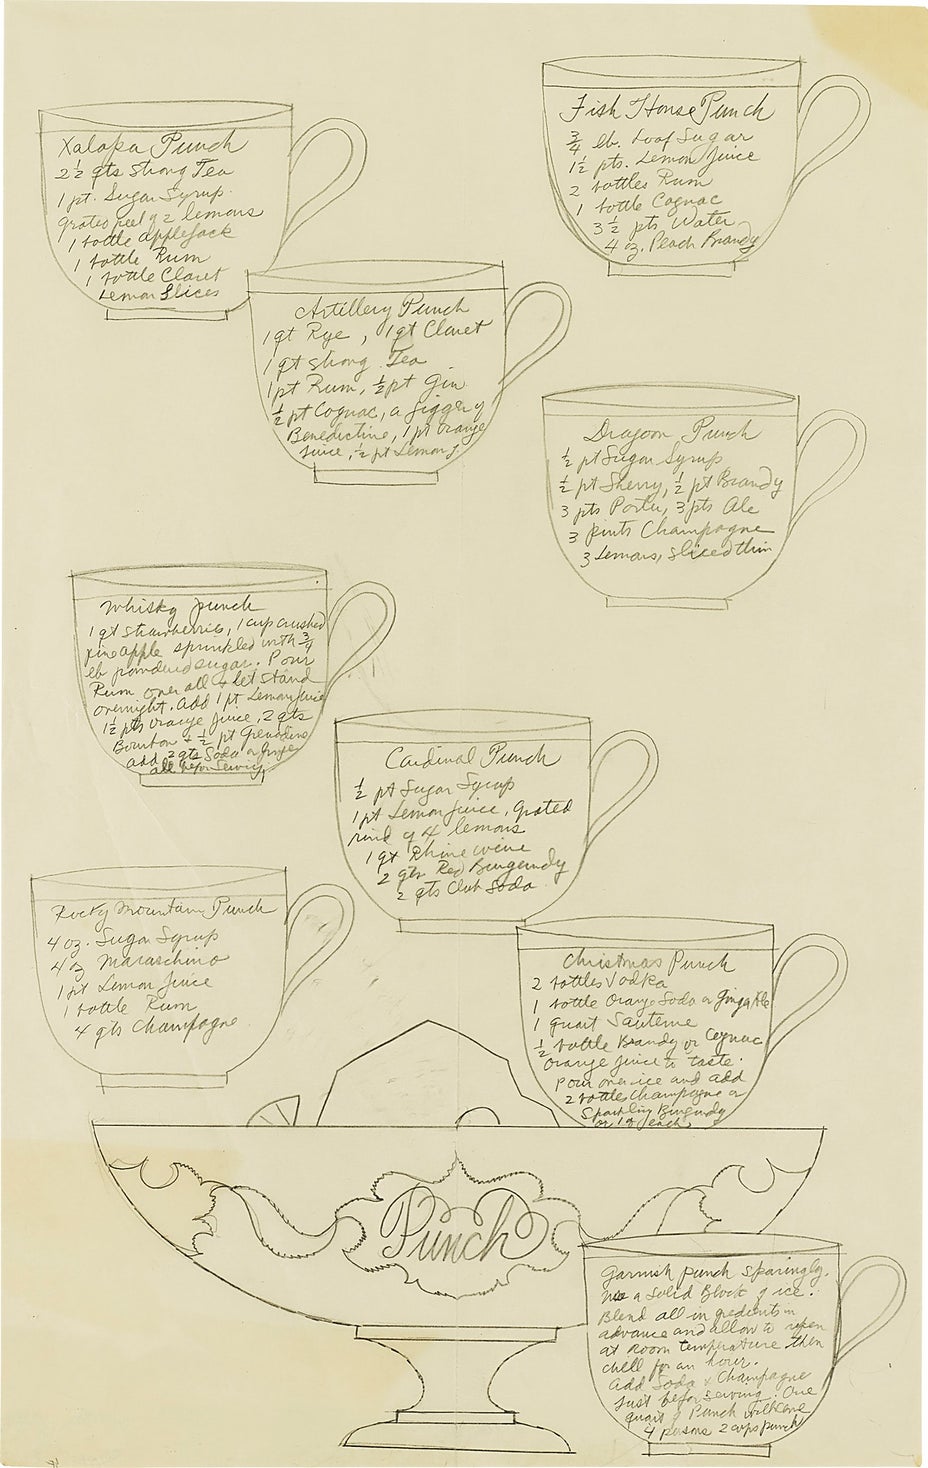 Xalapa Punch
2½ qts Strong Tea
1 pt. Sugar Syrup.
grated peel of 2 lemons
1 bottle applejack
1 bottle Rum
1 bottle Claret
Lemon Slices
Fish House Punch
¾ lb. Loaf Sugar
1½ pts. Lemon Juice
2 bottles Rum
1 bottle Cognac
3½ pts Water
4 oz. Peach Brandy
Artillery Punch
1 qt Rye, 1 qt Claret
1 qt strong Tea
1 pt Rum, ½ pt Gin
½ pt Cognac, a jigger of
Benedictine, 1 pt orange
juice, ½ pt Lemon J.
Dragoon Punch
½ pt Sugar Syrup
½ pt Sherry, ½ pt Brandy
3 pts Porter, 3 pts Ale
3 pints Champagne
3 Lemons, sliced thin
Whisky punch
1 qt strawberries, 1 cup crushed
pineapple sprinkled with ¾
lb powdered sugar. Pour
Rum over all & let stand
overnight. Add 1 pt Lemon Juice
1½ pts orange juice, 2 qts
Bourbon + ½ pt Grenadine
add 2 qts Soda or ginger
ale before serving
Cardinal Punch
½ pt Sugar Syrup
1 pt Lemon Juice, grated
rind of 4 lemons
1 qt Rhine wine
2 qts Red Burgundy
2 qts Club Soda
Rocky Mountain Punch
4 oz. Sugar Syrup
4 oz Maraschino
1 pt Lemon Juice
1 bottle Rum
4 qts Champagne
Christmas Punch
2 bottles Vodka
1 bottle Orange Soda or Ginger Ale
1 quart Sauterne
½ bottle Brandy or Cognac
Orange Juice to taste.
Pour over ice and add
2 bottles Champagne or
Sparkling Burgundy
or 1 of each
Punch
Garnish punch sparingly.
Use a Solid Block of ice.
Blend all ingredients in
advance and allow to ripen
at Room temperature then
chill for an hour.
Add Soda & Champagne
just before serving. One
quart of Punch will serve
4 persons 2 cups punch